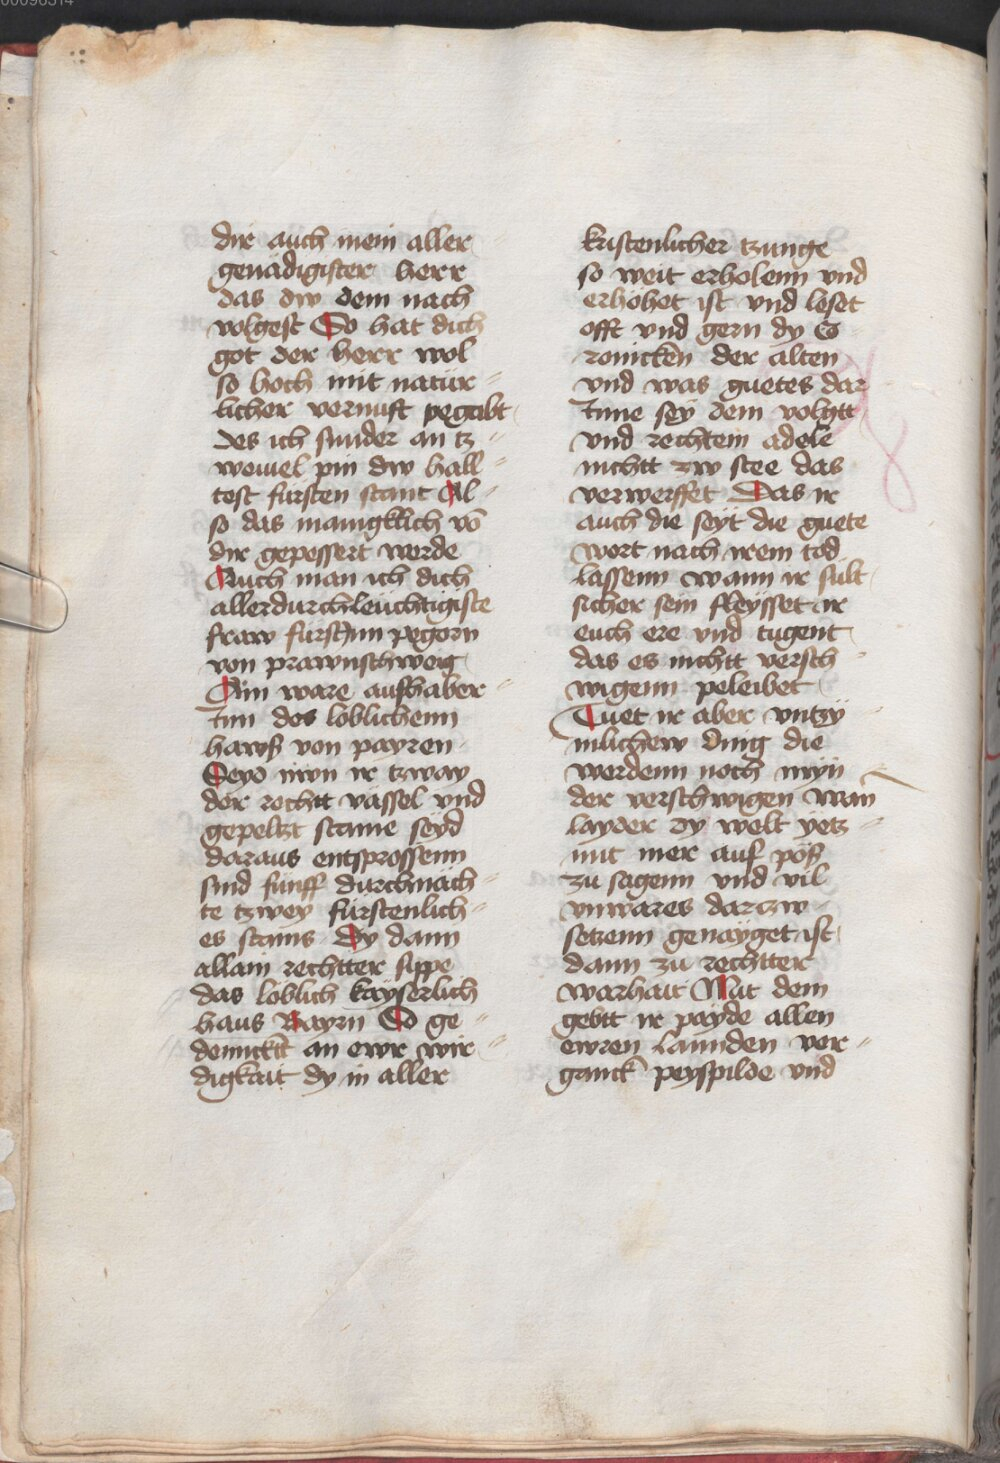 dir auch mein aller
genädigister herr
das dw dem nach
volgest So hat dich
got der herr wol
so hoch mit natür=
licher vernuft pegabt
des ich sunder an tz=
weiuel pin dw hall=
test fürsten stant Al=
so das manigklich vō
dir gepessert werde
Auch man ich dich
allerdurchleüchtigiste
fraw fürstinn pegorn
von prawnschweig
Ain ware aufhaber=
Inn des loblichenn
hawß von payren
Seyd nwn ir tzway
der rechtt vässel vnd
gepeltzt stame seyd
daraus entsprossenn
sind fünff durchnäch=
te tzwey fürstenlich=
es stams Dy dann
allain rechtter sippe
das loblich kayserlich
haus Bayrn So ge=
denncktt an ewr wir=
digkait dy in aller
kristenlicher tzunge
so weit erholenn vnd
erhohet ist vnd leset
offt vnd gern dy Co=
ronicken der alten
vnd was guetes dar=
Inne sey dem volgtt
vnd rechtem adele
nichtt zw stee das
verwerffet Das ir
auch die seyt die guete
wort nach irem tod
lassenn wann ir sült
sicher sein fleysset ir
euch ere vnd tugent
das es nichtt versch=
wigenn peleibet
Tuet ir aber vntzy=
mlichew ding die
werdenn noch myn=
der verschwigen wan
layder dy welt yetz=
mit mer auf pöß
zu sagenn vnd vil
vnwares darzzw=
setzenn genayget ist
dann zu rechtter
warhait Mit dem
gebtt ir payde allen
ewren lannden ver=
ganck peyspilde vnd